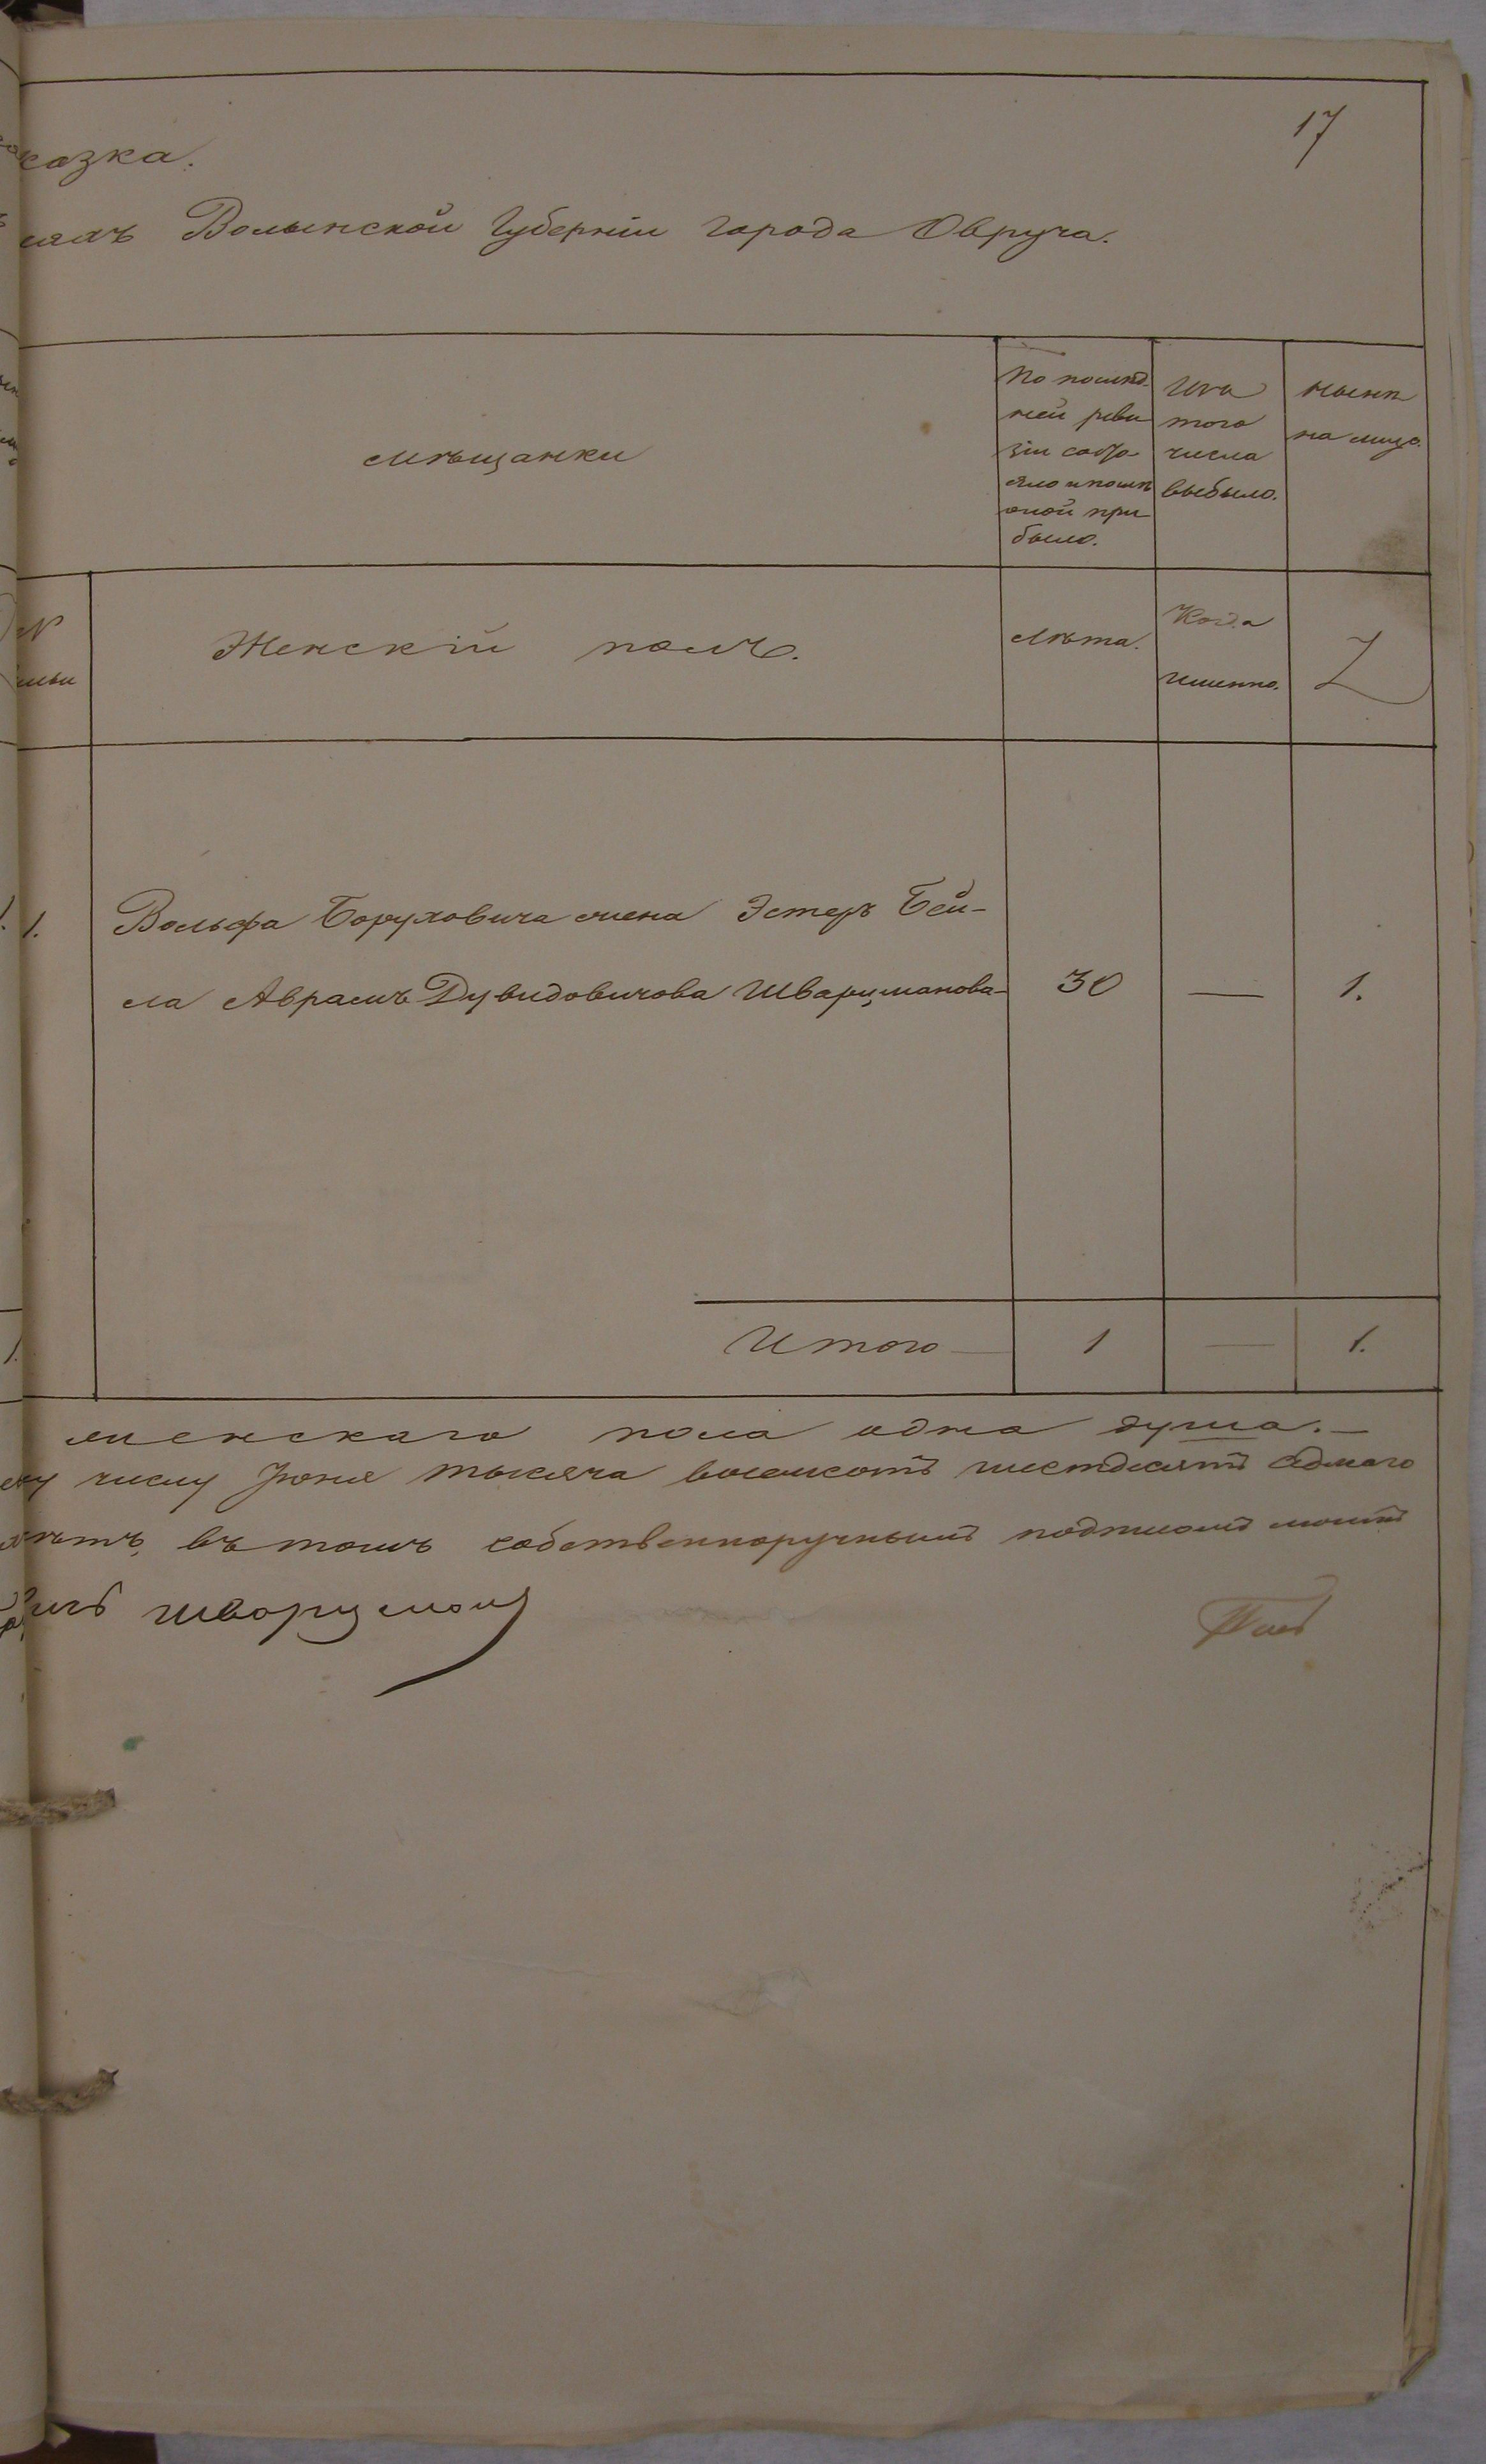 17
сказка.
Волынской Губерніи города Овруча.
Мѣщанки
По послѣд-
ней реви
зіи состо
яло и послѣ
оной при
было.
Изъ
того
числа
выбыло.
Нынѣ
на лицо.
№
Женскій полъ.
Лѣта.
Когда
именно.
1. 1.
Вольфа Боруховича жена Эстеръ Бей-
ла Аврамъ Дувидовичова Шварцманова 30 — 1.
Итого 1 — 1.
женскаго пола одна душа.—
числу Іюня тысяча восемсотъ шестдесятъ седмаго
въ томъ собственноручнымъ подписомъ моимъ
шворцмонъ